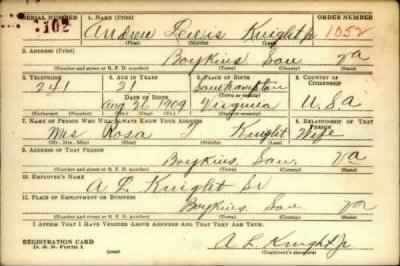 SERIAL NUMBER 1. NAME (Print) ORDER NUMBER
102 Andrew Lewis Knight Jr 1052
(First) (Middle) (Last)
2. ADDRESS (Print)
Boykins Sou Va
(Number and street or R. F. D. number) (Town) (County) (State)
3. TELEPHONE 4. AGE IN YEARS 5. PLACE OF BIRTH 6. COUNTRY OF CITIZENSHIP
241 31 Southampton
DATE OF BIRTH (Town or county)
Aug 26 1909 Virginia U.S.a
(Exchange) (Number) (Mo.) (Day) (Yr.) (State or country)
7. NAME OF PERSON WHO WILL ALWAYS KNOW YOUR ADDRESS 8. RELATIONSHIP OF THAT PERSON
Mrs Rosa T Knight Wife
(Mr., Mrs., Miss) (First) (Middle) (Last)
9. ADDRESS OF THAT PERSON
Boykins, Sou, Va
(Number and street or R. F. D. number) (Town) (County) (State)
10. EMPLOYER'S NAME
A L Knight Sr
11. PLACE OF EMPLOYMENT OR BUSINESS
Boykins, Sou Va
(Number and street or R. F. D. number) (Town) (County) (State)
I AFFIRM THAT I HAVE VERIFIED ABOVE ANSWERS AND THAT THEY ARE TRUE.
REGISTRATION CARD
D. S. S. Form 1 A L Knight Jr
(Registrant's signature)